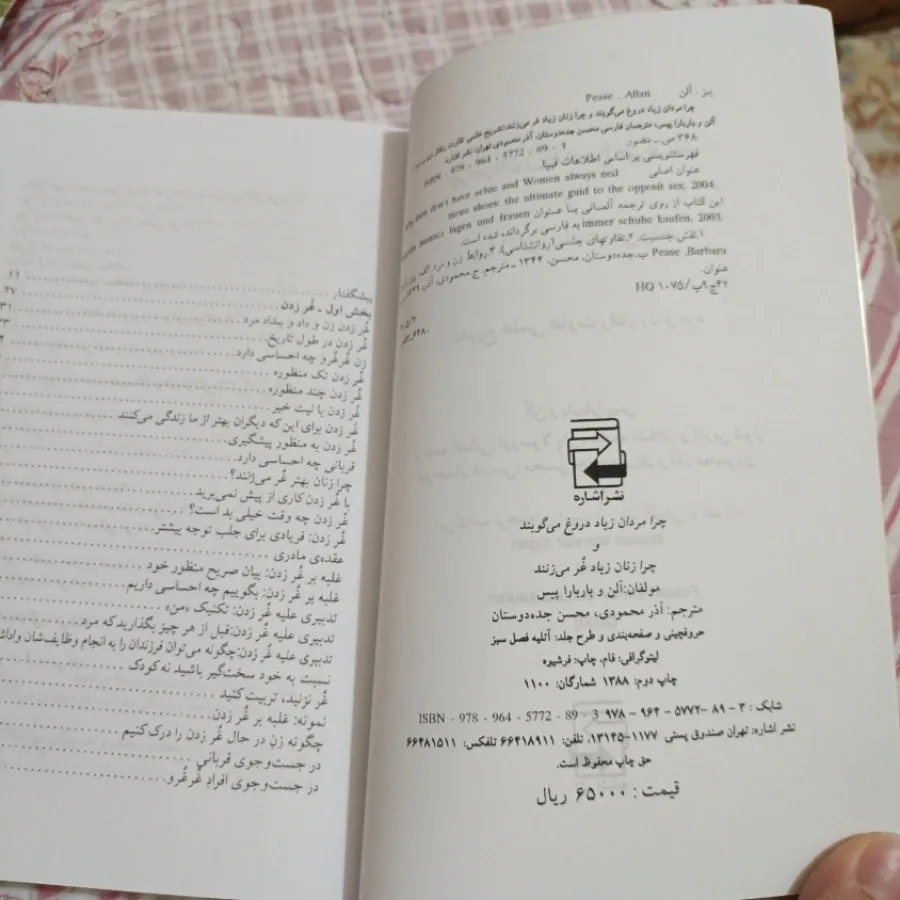 پیز، آلن Pease _ Allan
چرا مردان زیاد دروغ می‌گویند و چرا زنان زیاد غر می‌زنند:تشریح علمی تفاوت رفتار
آلن و باربارا پیس؛ مترجمان فارسی محسن جده‌دوستان، آذر محمودی.تهران: نشر اشاره
۳۶۸ ص.ـ مصور.
ISBN - 978 - 964 - 5772 - 89 - 3
فهرستنویسی بر اساس اطلاعات فیپا.
عنوان اصلی
men don't have aclue and Women always ned
more shoes: the ultimate guid to the opposit sex, 2004.
این کتاب از روی ترجمه آلمانی با عنوان lugen und frauen
immer schuhe kaufen, 2003. به فارسی برگردانده شده است.
۱.نقش جنسیت. ۲.تفاوتهای جنسی(روانشناسی). ۳.روابط زن و مرد. الف.
Pease .Barbara ب.جده‌دوستان، محسن، ۱۳۴۴ ـ مترجم. ج.محمودی، آذر،
عنوان.
HQ ۱۰۷۵/
نشر اشاره
چرا مردان زیاد دروغ می‌گویند
و
چرا زنان زیاد غُر می‌زنند
مولفان: آلن و باربارا پیس
مترجم: آذر محمودی، محسن جده‌دوستان
حروفچینی و صفحه‌بندی و طرح جلد: آتلیه فصل سبز
لیتوگرافی: قام، چاپ: فرشیوه
چاپ دوم: ۱۳۸۸ شمارگان: ۱۱۰۰
شابک : ۳ - ۸۹ -۵۷۷۲ - ۹۶۴ - ۹۷۸ ISBN - 978 - 964 - 5772 - 89 - 3
نشر اشاره: تهران صندوق پستی ۱۱۷۷-۱۳۱۴۵، تلفن: ۶۶۴۱۸۹۱۱ تلفکس: ۶۶۴۸۱۵۱۱
حق چاپ محفوظ است.
قیمت : ۶۵۰۰۰ ریال
پیشگفتار ۱۱
بخش اول - غُر زدن ۲۷
غُر زدن زن و داد و بیداد مرد
غُر زدن در طول تاریخ.
زن غُرغُرو چه احساسی دارد
غُر زدن تک منظوره
غُر زدن چند منظوره
غُر زدن با نیت خیر
غُر زدن برای این‌که دیگران بهتر از ما زندگی می‌کنند
غُر زدن به منظور پیشگیری
قربانی چه احساسی دارد.
چرا زنان بهتر غُر می‌زنند؟
با غُر زدن کاری از پیش نمی‌برید
غُر زدن چه وقت خیلی بد است؟
غُر زدن: فریادی برای جلب توجه بیشتر
عقده‌ی مادری
غلبه بر غُر زدن: بیان صریح منظور خود
غلبه بر غُر زدن: بگوییم چه احساسی داریم
تدبیری علیه غُر زدن: تکنیک «من»
تدبیری علیه غُر زدن:قبل از هر چیز بگذارید که مرد
تدبیری علیه غُر زدن:چگونه می‌توان فرزندان را به انجام وظایف‌شان
نسبت به خود سخت‌گیر باشید نه کودک
غُر نزنید، تربیت کنید
نمونه: غلبه بر غُر زدن
چگونه زنِ در حال غُر زدن را درک‌کنیم
در جست‌وجوی قربانی
در جست‌وجوی افرادِ غُرغُرو.